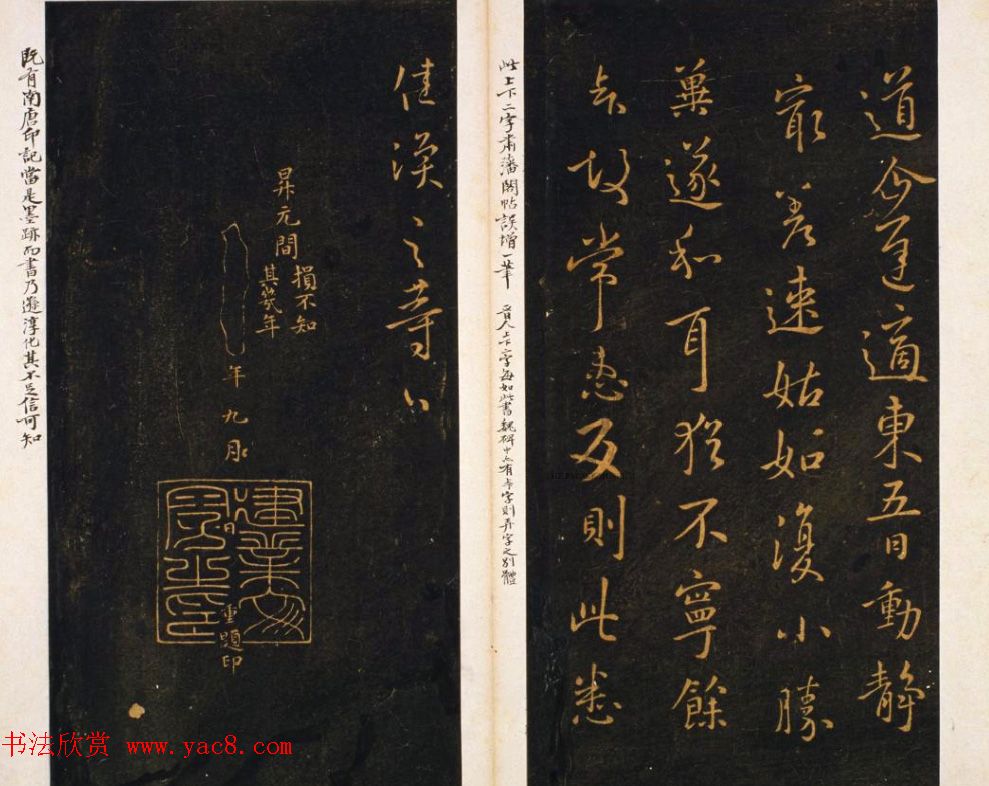 道今遣適東五日動靜
宷差速姑如復小勝
菓遂和耳猶不寧餘
上下故常患反則此悉
佳漢之等公
昇元間
損不知
其幾年
年九月
建業文房之印
重題印
此上下二字肅藩閣帖誤增一筆 晉人上下字每如此書魏碑中亦有卡字則弄字之別體
既有南唐印記當是墨跡而書乃遜淳化其不足信可知
书法欣赏 www.yac8.com